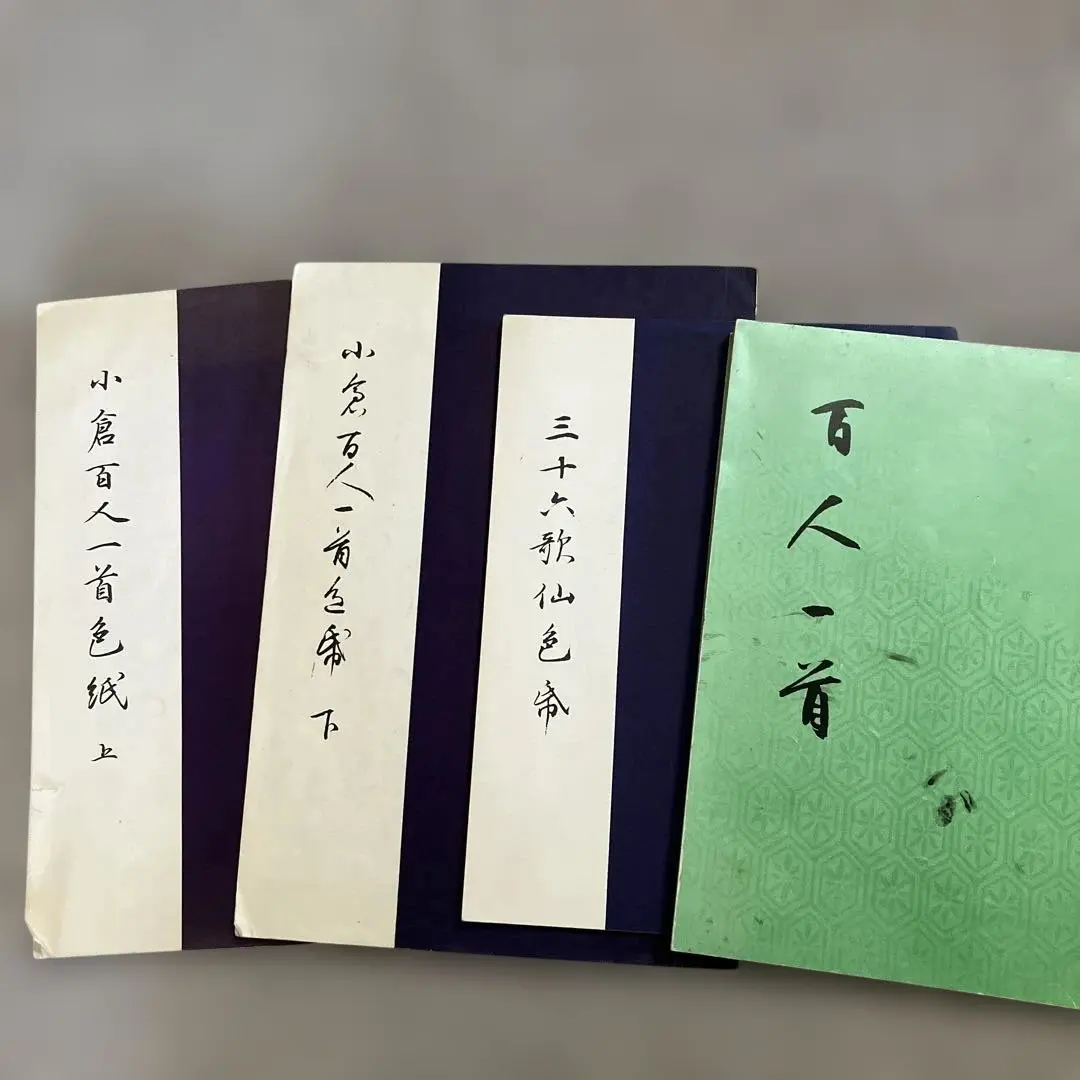 小倉百人一首色紙 上
小倉百人一首色帋 下
三十六歌仙色帋
百人一首